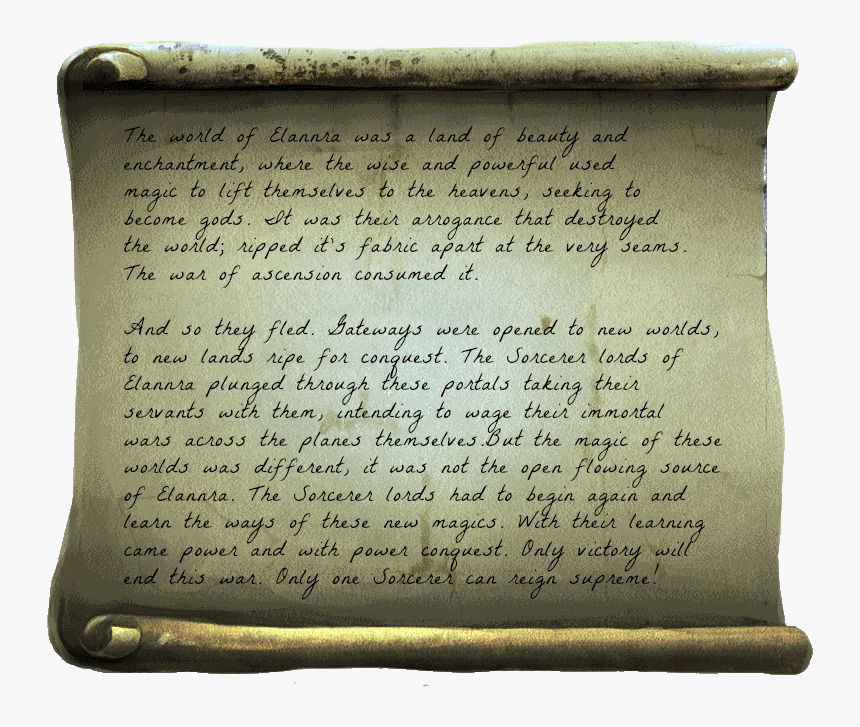 The world of Elannra was a land of beauty and
enchantment, where the wise and powerful used
magic to lift themselves to the heavens, seeking to
become gods. It was their arrogance that destroyed
the world; ripped it's fabric apart at the very seams.
The war of ascension consumed it.
And so they fled. Gateways were opened to new worlds,
to new lands ripe for conquest. The Sorcerer lords of
Elannra plunged through these portals taking their
servants with them, intending to wage their immortal
wars across the planes themselves.But the magic of these
worlds was different, it was not the open flowing source
of Elannra. The Sorcerer lords had to begin again and
learn the ways of these new magics. With their learning
came power and with power conquest. Only victory will
end this war. Only one Sorcerer can reign supreme!